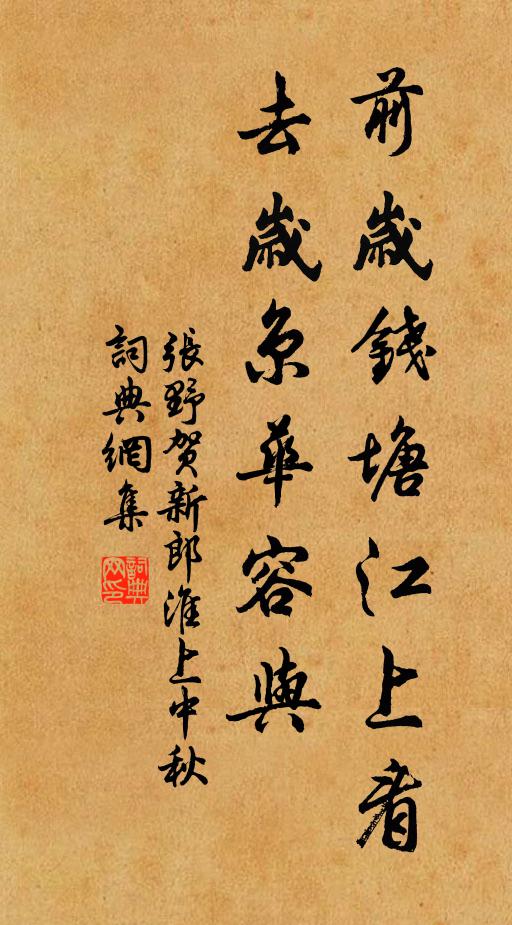 前歲錢塘江上看
去歲京華容與
張野賀新郎淮上中秋
詞典網集
詞典网印